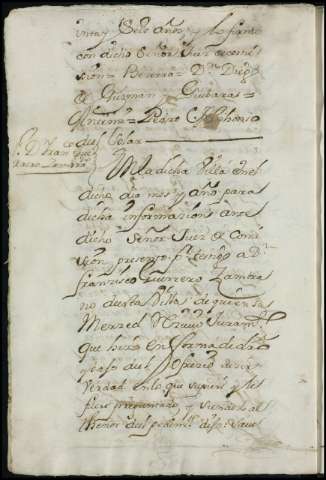 y seis años y lo firmo
con dicho Señor Juez de comi
sion = Bezerra = Dn Diego
de Guzman y Guebara =
Pedro Alphonso
de Celar
Dn Fran.co Gue
rrero Zambra.o
En la dicha Villa en el
dicho dia mes y año para
dicha informacion ante
dicho Señor Juez de Comi
sion presento p.r testigo a Dn
Francisco Guerrero Zambra
no de esta Villa de quien su
Merzed Rezivio Juram.to
que hizo en forma de dro
y vajo del ofrezio dezir
Verdad en lo que supiere y le
fuere preguntado y siendolo al
thenor del pedim.to dijo: save